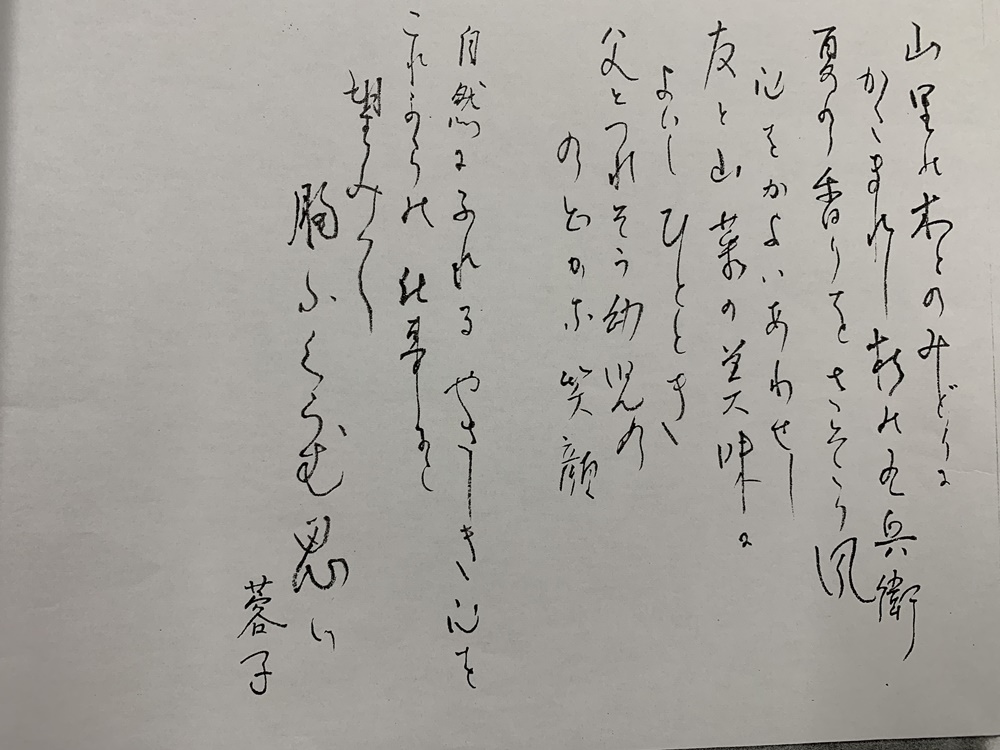 山里の木々のみどりに
かこまれし の兵衛
夏の香りをさそう風
心をかよいあわせし
友と山菜の美味に
よいしひととき
父とつれそう幼児の
のどかな笑顔
自然にふれるやさしき心を
これからの
望み
胸ふくらむ思い
蓉子